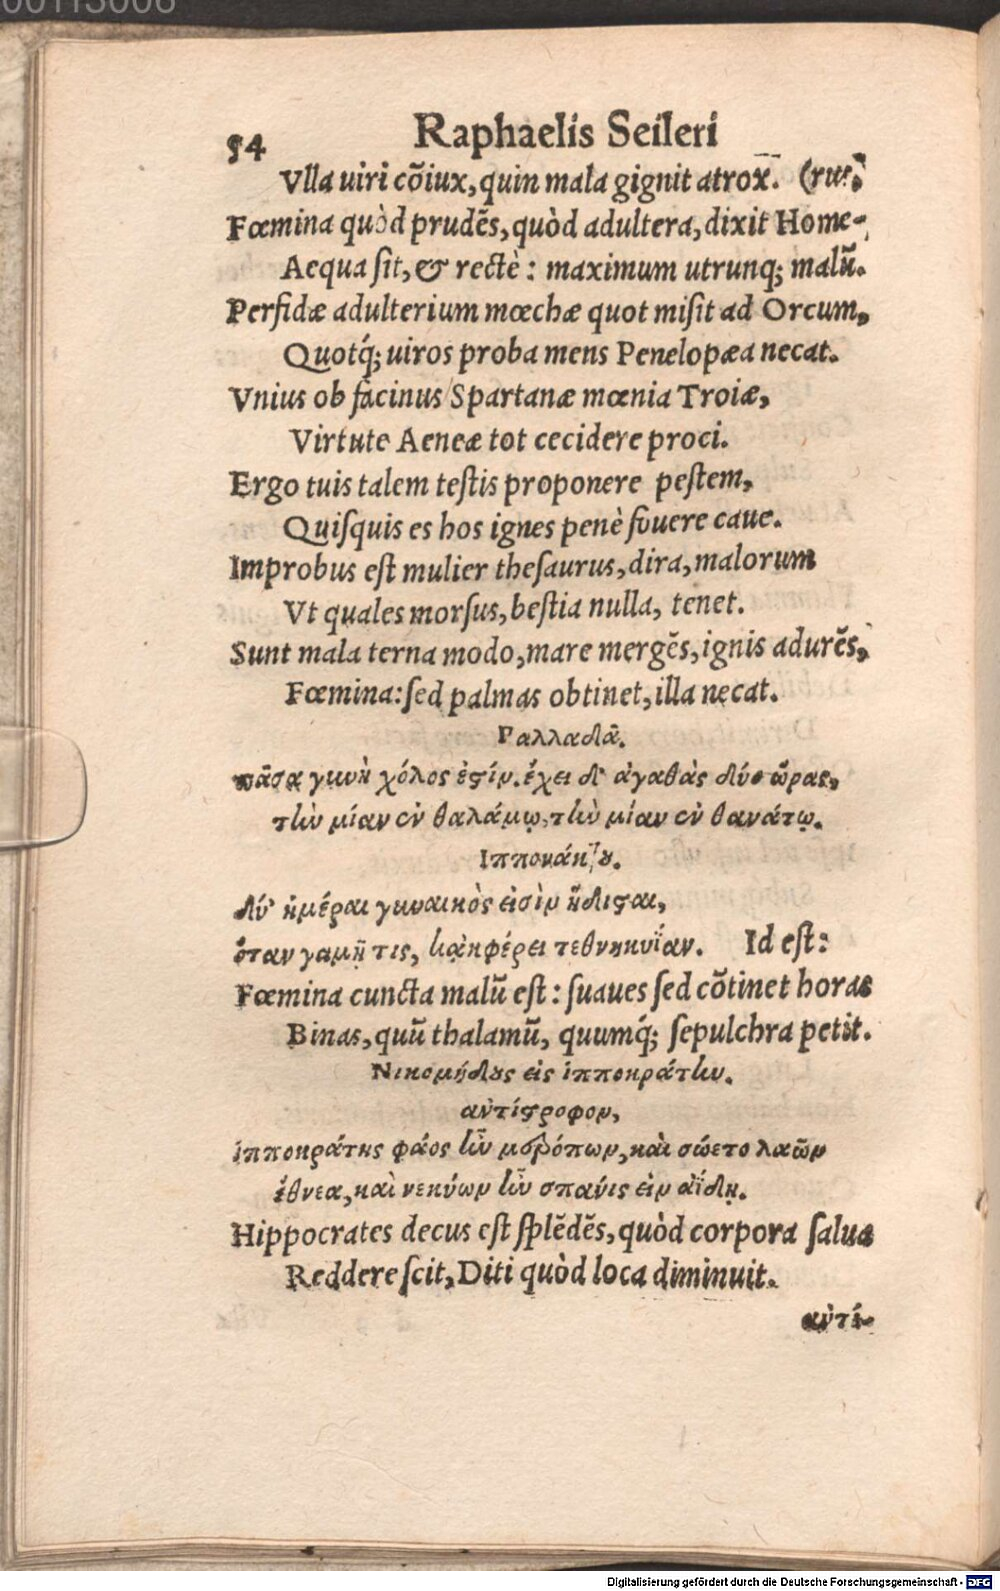 54 Raphaelis Seileri
Vlla uiri cõiux, quin mala gignit atrox. (rus,
Fœmina quòd prudẽs, quòd adultera, dixit Home-
Aequa sit, & rectè: maximum utrunq; malũ.
Perfidæ adulterium mœchæ quot misit ad Orcum,
Quotq́; uiros proba mens Penelopæa necat.
Vnius ob facinus Spartanæ mœnia Troiæ,
Virtute Aeneæ tot cecidere proci.
Ergo tuis talem testis proponere pestem,
Quisquis es hos ignes penè fouere caue.
Improbus est mulier thesaurus, dira, malorum
Vt quales morsus, bestia nulla, tenet.
Sunt mala terna modo, mare mergẽs, ignis adurẽs,
Fœmina: sed palmas obtinet, illa necat.
Παλλαδᾶ.
πᾶσα γυνὴ χόλος ἐςίν. ἔχει δ' ἀγαθὰς δύο ὥρας,
τὴν μίαν ἐν θαλάμῳ, τὴν μίαν ἐν θανάτῳ.
Ιππονάκτου.
δύ' ἡμέραι γυναικὸς εἰσὶν ἥδιςαι,
ὅταν γαμῇ τις, κἀκφέρει τεθνηκυῖαν. Id est:
Fœmina cuncta malũ est: suaues sed cõtinet horas
Binas, quũ thalamũ, quumq́; sepulchra petit.
Νικομήδους εἰς ἱπποκράτην.
ἀντίςροφον,
ἱπποκράτης φάος ἦν μερόπων, καὶ σώετο λαῶν
ἔθνεα, καὶ νεκύων ἦν σπάνις εἰν ἀΐδῃ.
Hippocrates decus est splẽdẽs, quòd corpora salua
Reddere scit, Diti quòd loca diminuit.
ἀντί-
Digitalisierung gefördert durch die Deutsche Forschungsgemeinschaft - DFG